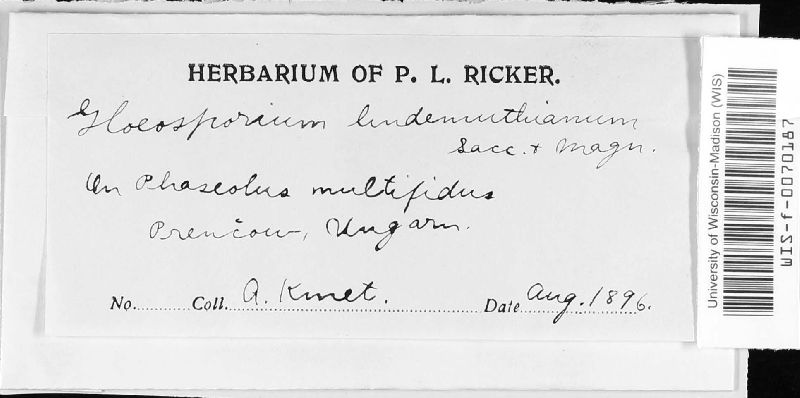 HERBARIUM OF P. L. RICKER.
Gloeosporium lindemuthianum
Sacc. + Magn.
On Phaseolus multifidus
Prenčow, Ungarn.
No. Coll. A. Kmet. Date Aug. 1896.
University of Wisconsin-Madison (WIS)
WIS-f-0070187